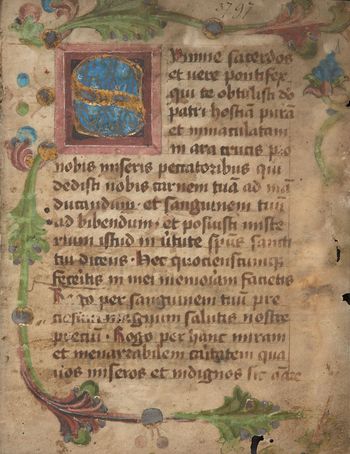 3797
Summe sacerdos
et vere pontifex
qui te obtulisti deo
patri hostiā purā
et immaculatam
in ara crucis pro
nobis miseris peccatoribus qui
dedisti nobis carnem tuā ad mā
ducandum · et sanguinem tuū
ad bibendum · et posuisti miste
rium istud in v̓tute sp̄us sancti
tui dicens · Hec quociescumq̄
fecer̄itis in mei memoriam facietis
Rogo per sanguinem tuū pre
ciosum magnum salutis nostre
precium · Rogo per hanc miram
et inenarrabilem caritatem qua
nos miseros et indignos sic amare